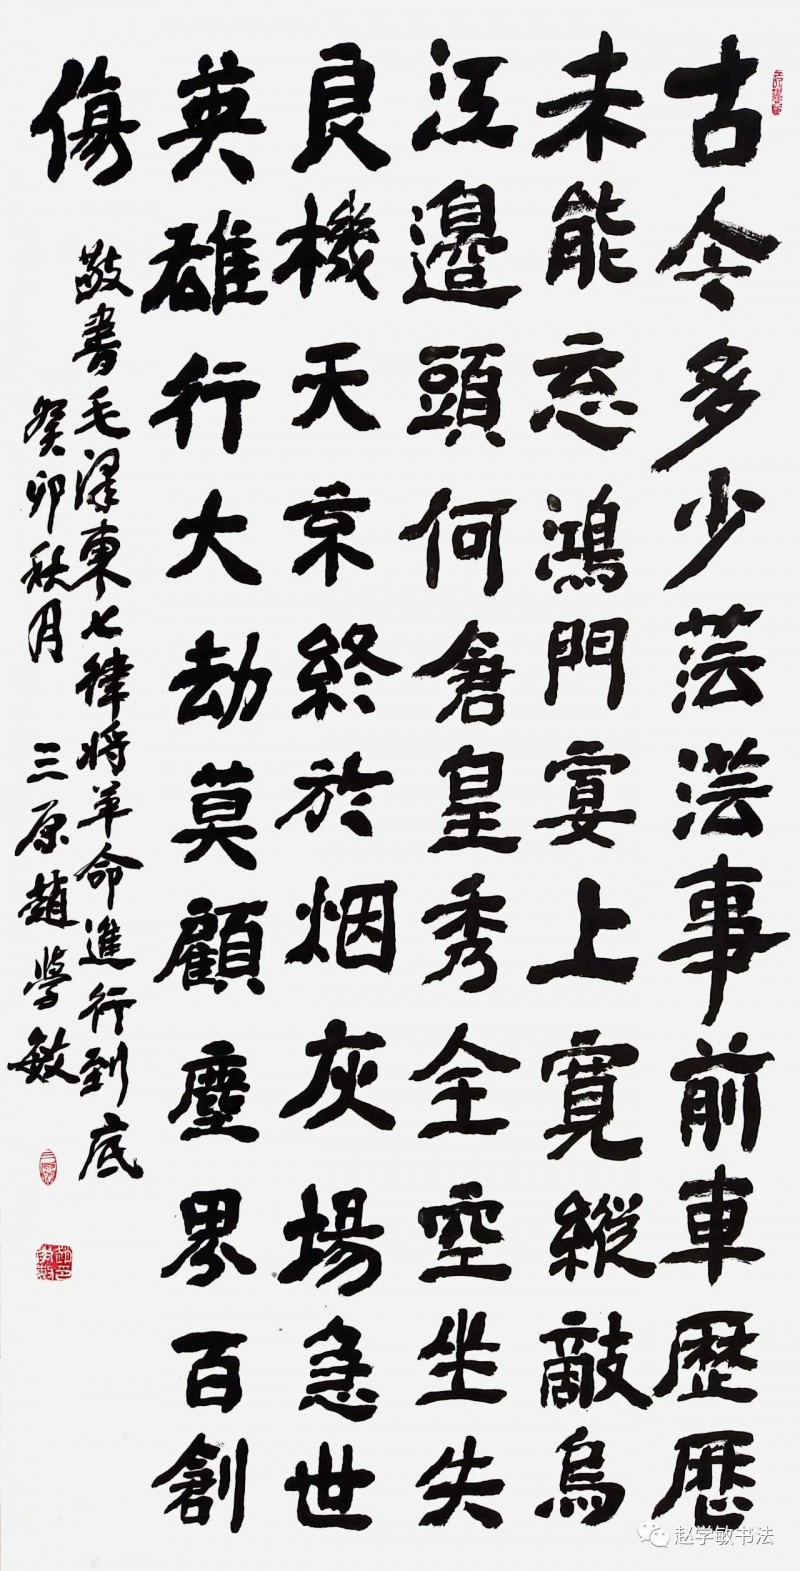 古今多少芸芸事前車歷歷
未能忘鴻門宴上寬縱敵烏
江邊頭何倉皇秀全空坐失
良機天京終於烟灰場急世
英雄行大劫莫顧塵界百創
傷
敬書毛澤東七律將革命進行到底
癸卯秋月 三原趙學敏
赵学敏书法